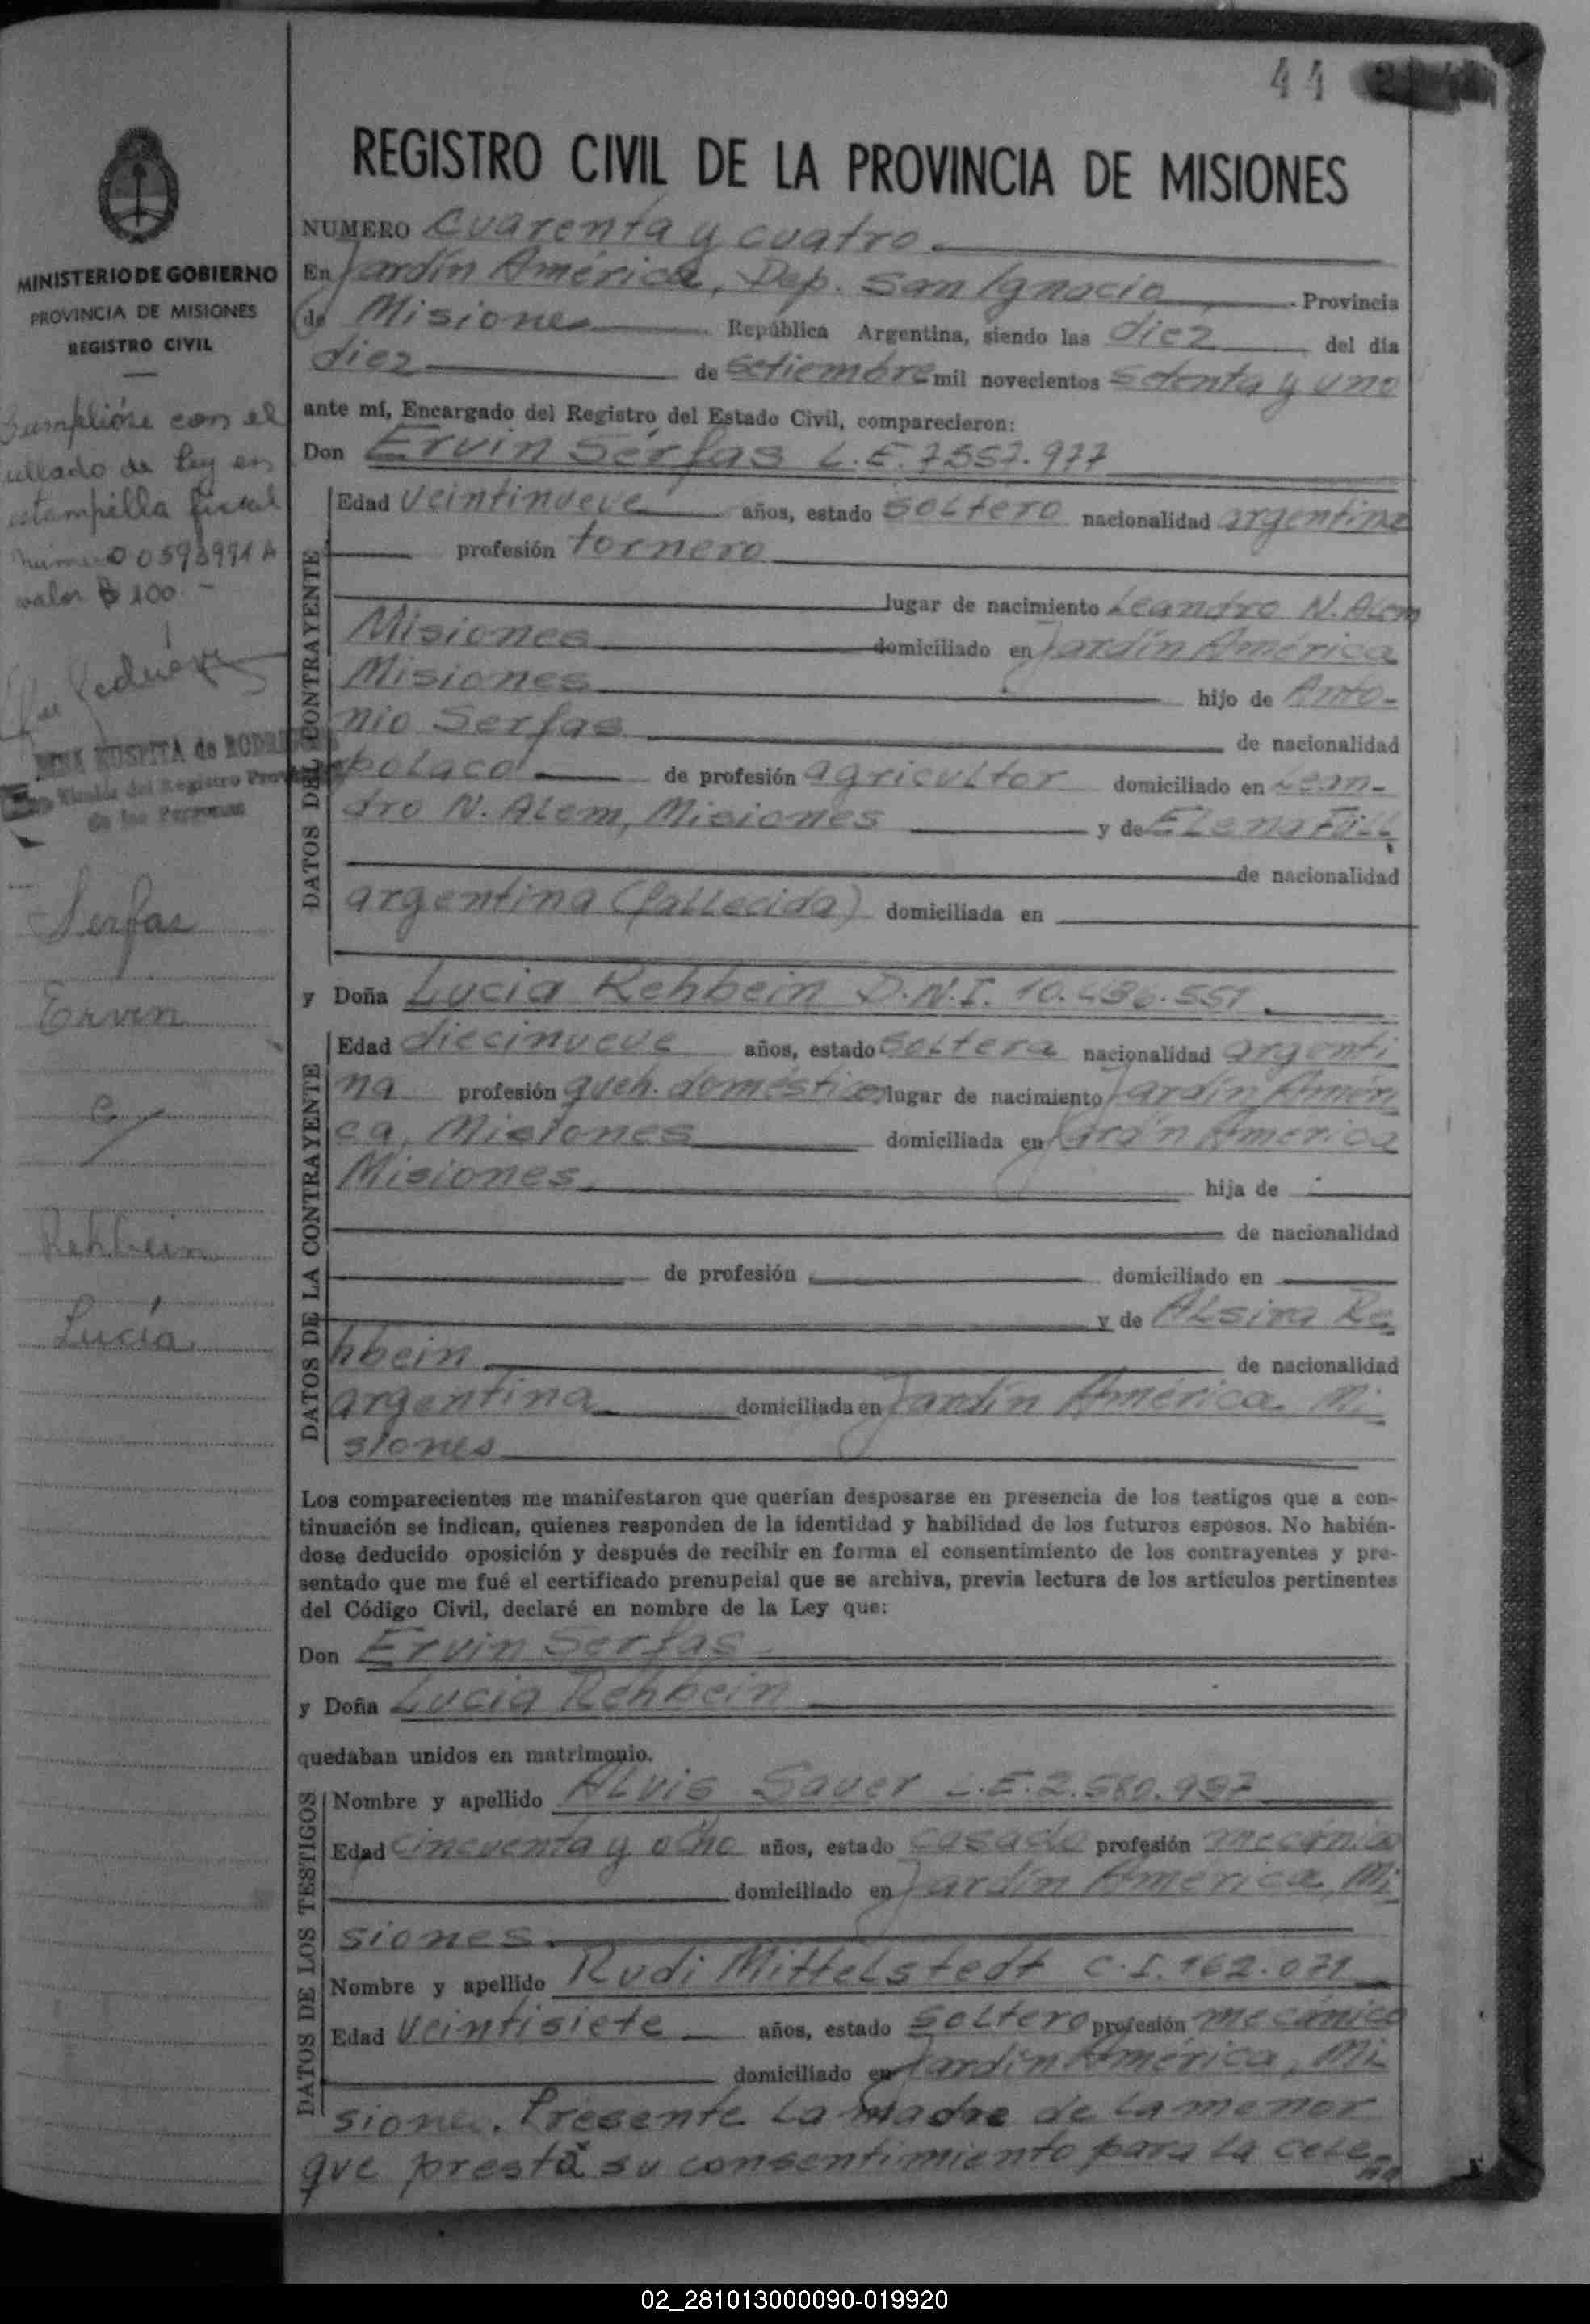 44
REGISTRO CIVIL DE LA PROVINCIA DE MISIONES
MINISTERIO DE GOBIERNO
PROVINCIA DE MISIONES
REGISTRO CIVIL
Cumplióse con el
sellado de Ley en
estampilla fiscal
número 0593991 A
valor $ 100.-
de RODRI
del Registro Prov
de las Personas
Serfas
Ervin
y
Rehbein
Lucía
NUMERO Cuarenta y cuatro
En Jardín América, Dep. San Ignacio Provincia
de Misiones República Argentina, siendo las diez del día
diez de setiembre mil novecientos setenta y uno
ante mí, Encargado del Registro del Estado Civil, comparecieron:
Don Ervin Serfas L.E. 7.557.977
DATOS DEL CONTRAYENTE
Edad veintinueve años, estado soltero nacionalidad argentina
profesión tornero
lugar de nacimiento Leandro N. Alem
Misiones domiciliado en Jardín América
Misiones hijo de Anto-
nio Serfas de nacionalidad
polaco de profesión agricultor domiciliado en Lean-
dro N. Alem, Misiones y de Elena
de nacionalidad
argentina (fallecida) domiciliada en
y Doña Lucia Rehbein D.N.I. 10.486.551
DATOS DE LA CONTRAYENTE
Edad diecinueve años, estado soltera nacionalidad argenti
na profesión queh. domésticos lugar de nacimiento Jardín Améri
ca, Misiones domiciliada en Jardín América
Misiones hija de
de nacionalidad
de profesión domiciliado en
y de Alsira Re
hbein de nacionalidad
argentina domiciliada en Jardín América Mi
siones
Los comparecientes me manifestaron que querían desposarse en presencia de los testigos que a con-
tinuación se indican, quienes responden de la identidad y habilidad de los futuros esposos. No habién-
dose deducido oposición y después de recibir en forma el consentimiento de los contrayentes y pre-
sentado que me fué el certificado prenupcial que se archiva, previa lectura de los artículos pertinentes
del Código Civil, declaré en nombre de la Ley que:
Don Ervin Serfas
y Doña Lucia Rehbein
quedaban unidos en matrimonio.
DATOS DE LOS TESTIGOS
Nombre y apellido Alvis Sauer L.E. 2.580.997
Edad cincuenta y ocho años, estado casado profesión mecánico
domiciliado en Jardín América, Mi
siones.
Nombre y apellido Rudi Mittelstedt C.I. 162.071
Edad veintisiete años, estado soltero profesión mecánico
domiciliado en Jardín América, Mi
siones. Presente la madre de la menor
que presta su consentimiento para la cele-
02_281013000090-019920